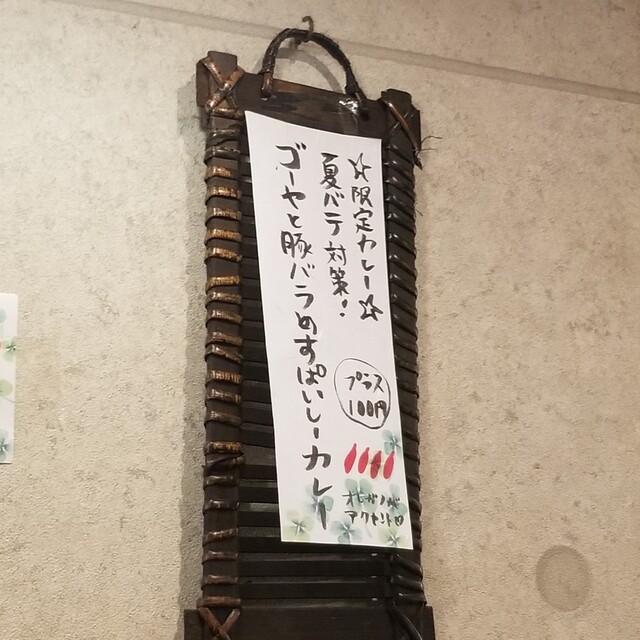 ☆限定カレー☆
夏バテ対策!
ゴーヤと豚バラのすぱいしーカレー
プラス
100円
アクセント